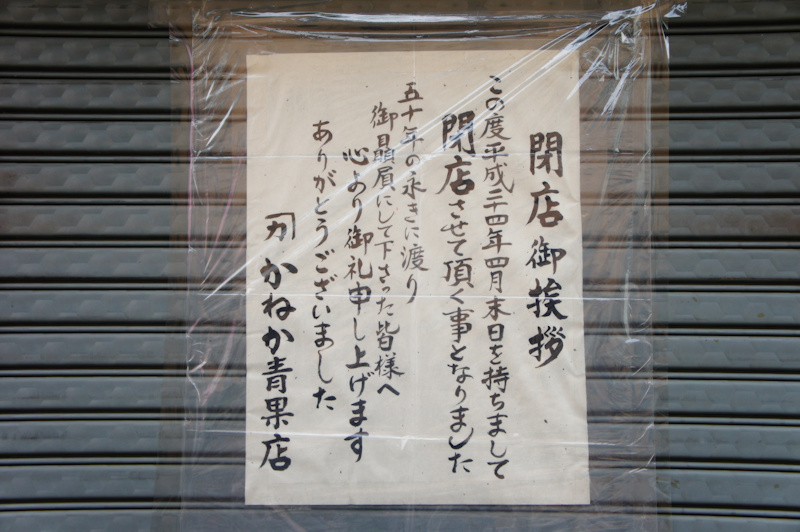 閉店御挨拶
この度平成二十四年四月末日を持ちまして
閉店させて頂く事となりました
五十年の永きに渡り
御贔屓にして下さった皆様へ
心より御礼申し上げます
ありがとうございました
かねか青果店